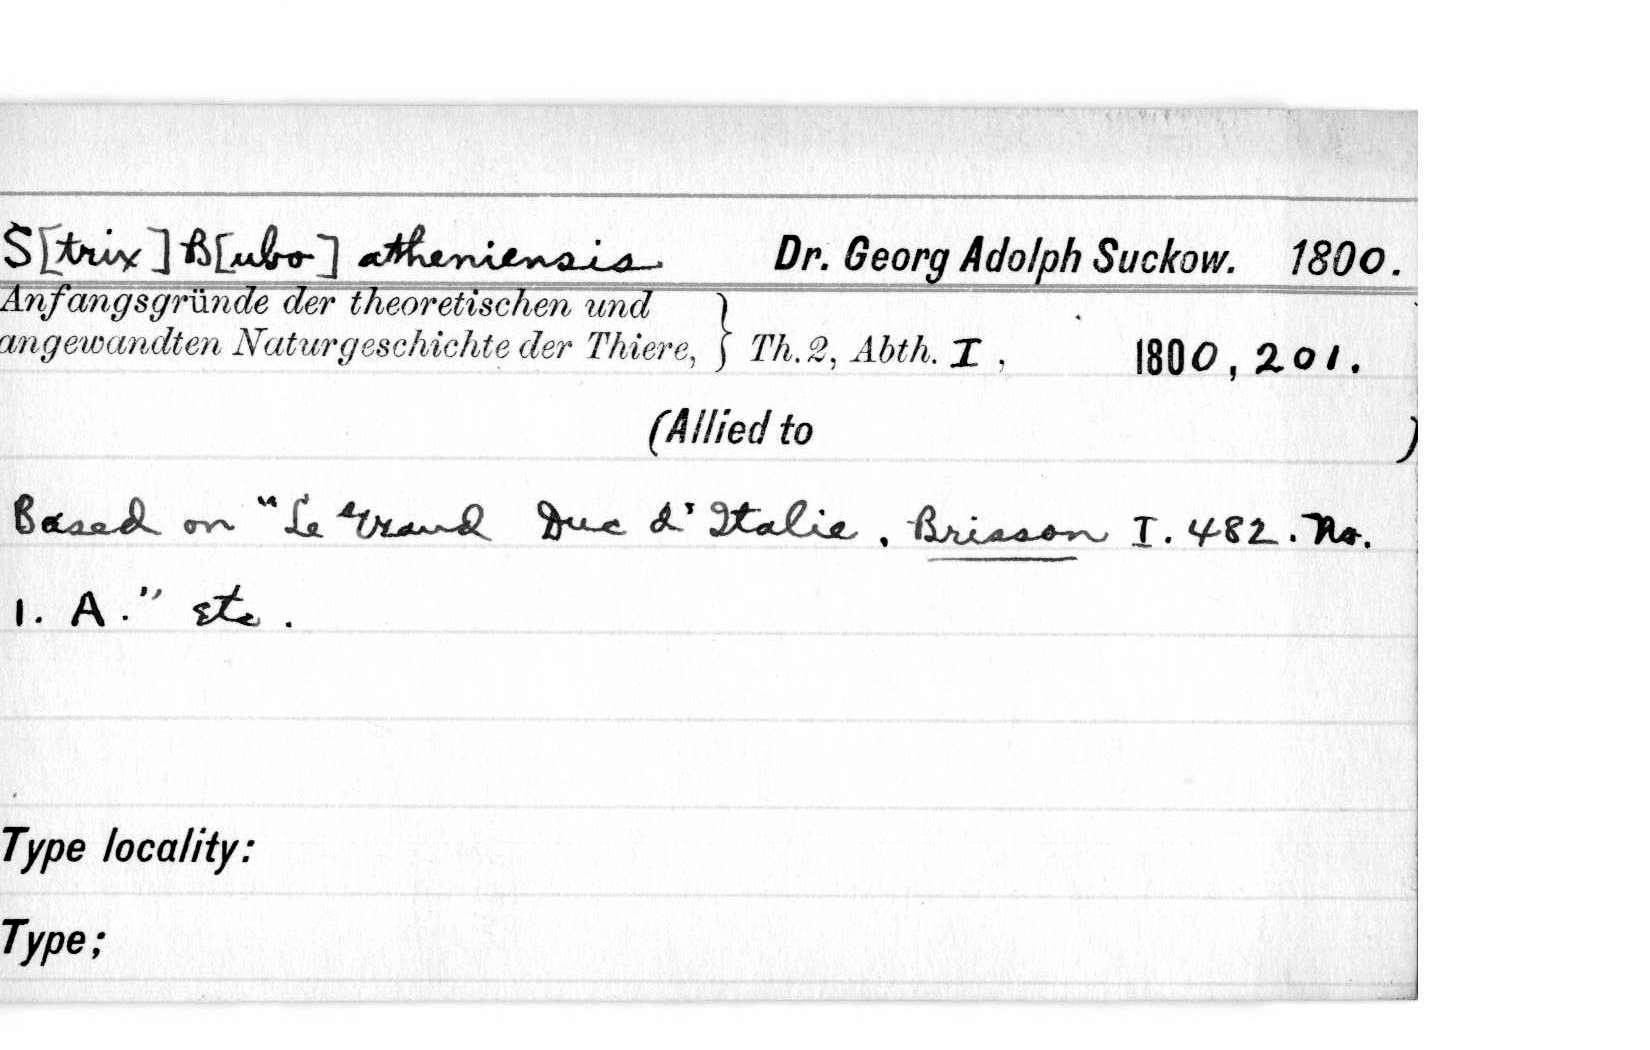 S[trix] B[ubo] atheniensis Dr. Georg Adolph Suckow. 1800.
Anfangsgründe der theoretischen und
angewandten Naturgeschichte der Thiere, } Th. 2, Abth. I, 1800, 201.
(Allied to )
Based on "Le Grand Duc d'Italie. Brisson I. 482. No.
1. A." etc.
Type locality:
Type;